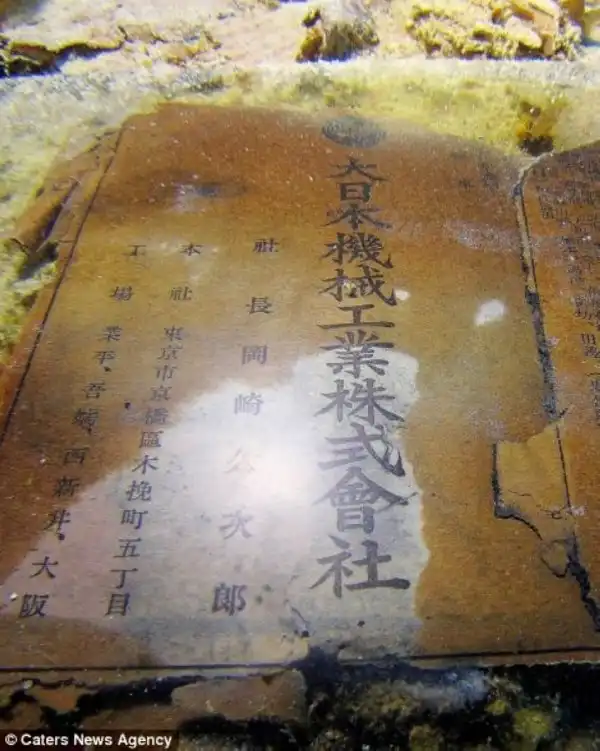 大日本機械工業株式會社
社長 岡崎久次郎
本社 東京市京橋區木挽町五丁目
工場 業平、吾嬬、西新井、大阪
© Caters News Agency